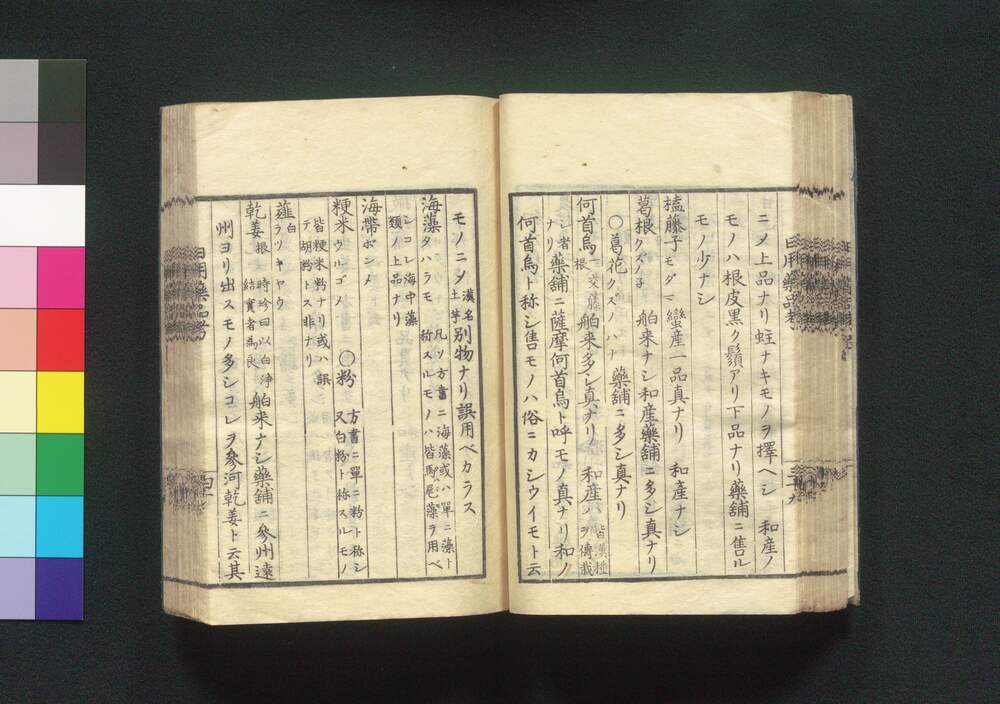 ニメ上品ナリ蛀ナキモノヲ擇ヘシ 和産ノ
モノハ根皮黒ク鬚アリ下品ナリ藥舗ニ售ル
モノ少ナシ
榼藤子モダマ 蠻産一品真ナリ 和産ナシ
葛根クズノ子 舶来ナシ和産藥舗ニ多シ真ナリ
○葛花クズノハナ 藥舗ニ多シ真ナリ
何首烏一根 交藤 舶来多シ真ナリ 和産 皆漢種ヲ傳栽
シ者ナリ 藥舗ニ薩摩何首烏ト呼モノ真ナリ和ノ
何首烏ト称シ售モノハ俗ニカシウイモト云
日用藥品考
モノニメ漢名土芋別物ナリ誤用ベカラス
海藻タハラモ 凡ソ方書ニ海藻或ハ單ニ藻ト
称スルモノハ皆馬尾藻ヲ用ベ
シコレ海中藻
類ノ上品ナリ
海帶
粳米ウルゴメ ○粉 方書ニ單ニ粉ト称シ
又白粉ト称スルモノ
皆粳米粉ナリ或ハ誤
テ胡粉トス非ナリ
薤白ラツキヤウ
乾姜根 時珍曰以白浄結實者為良 舶来ナシ藥舗ニ參州遠
州ヨリ出スモノ多シコレヲ參河乾姜ト云其
日用藥品考